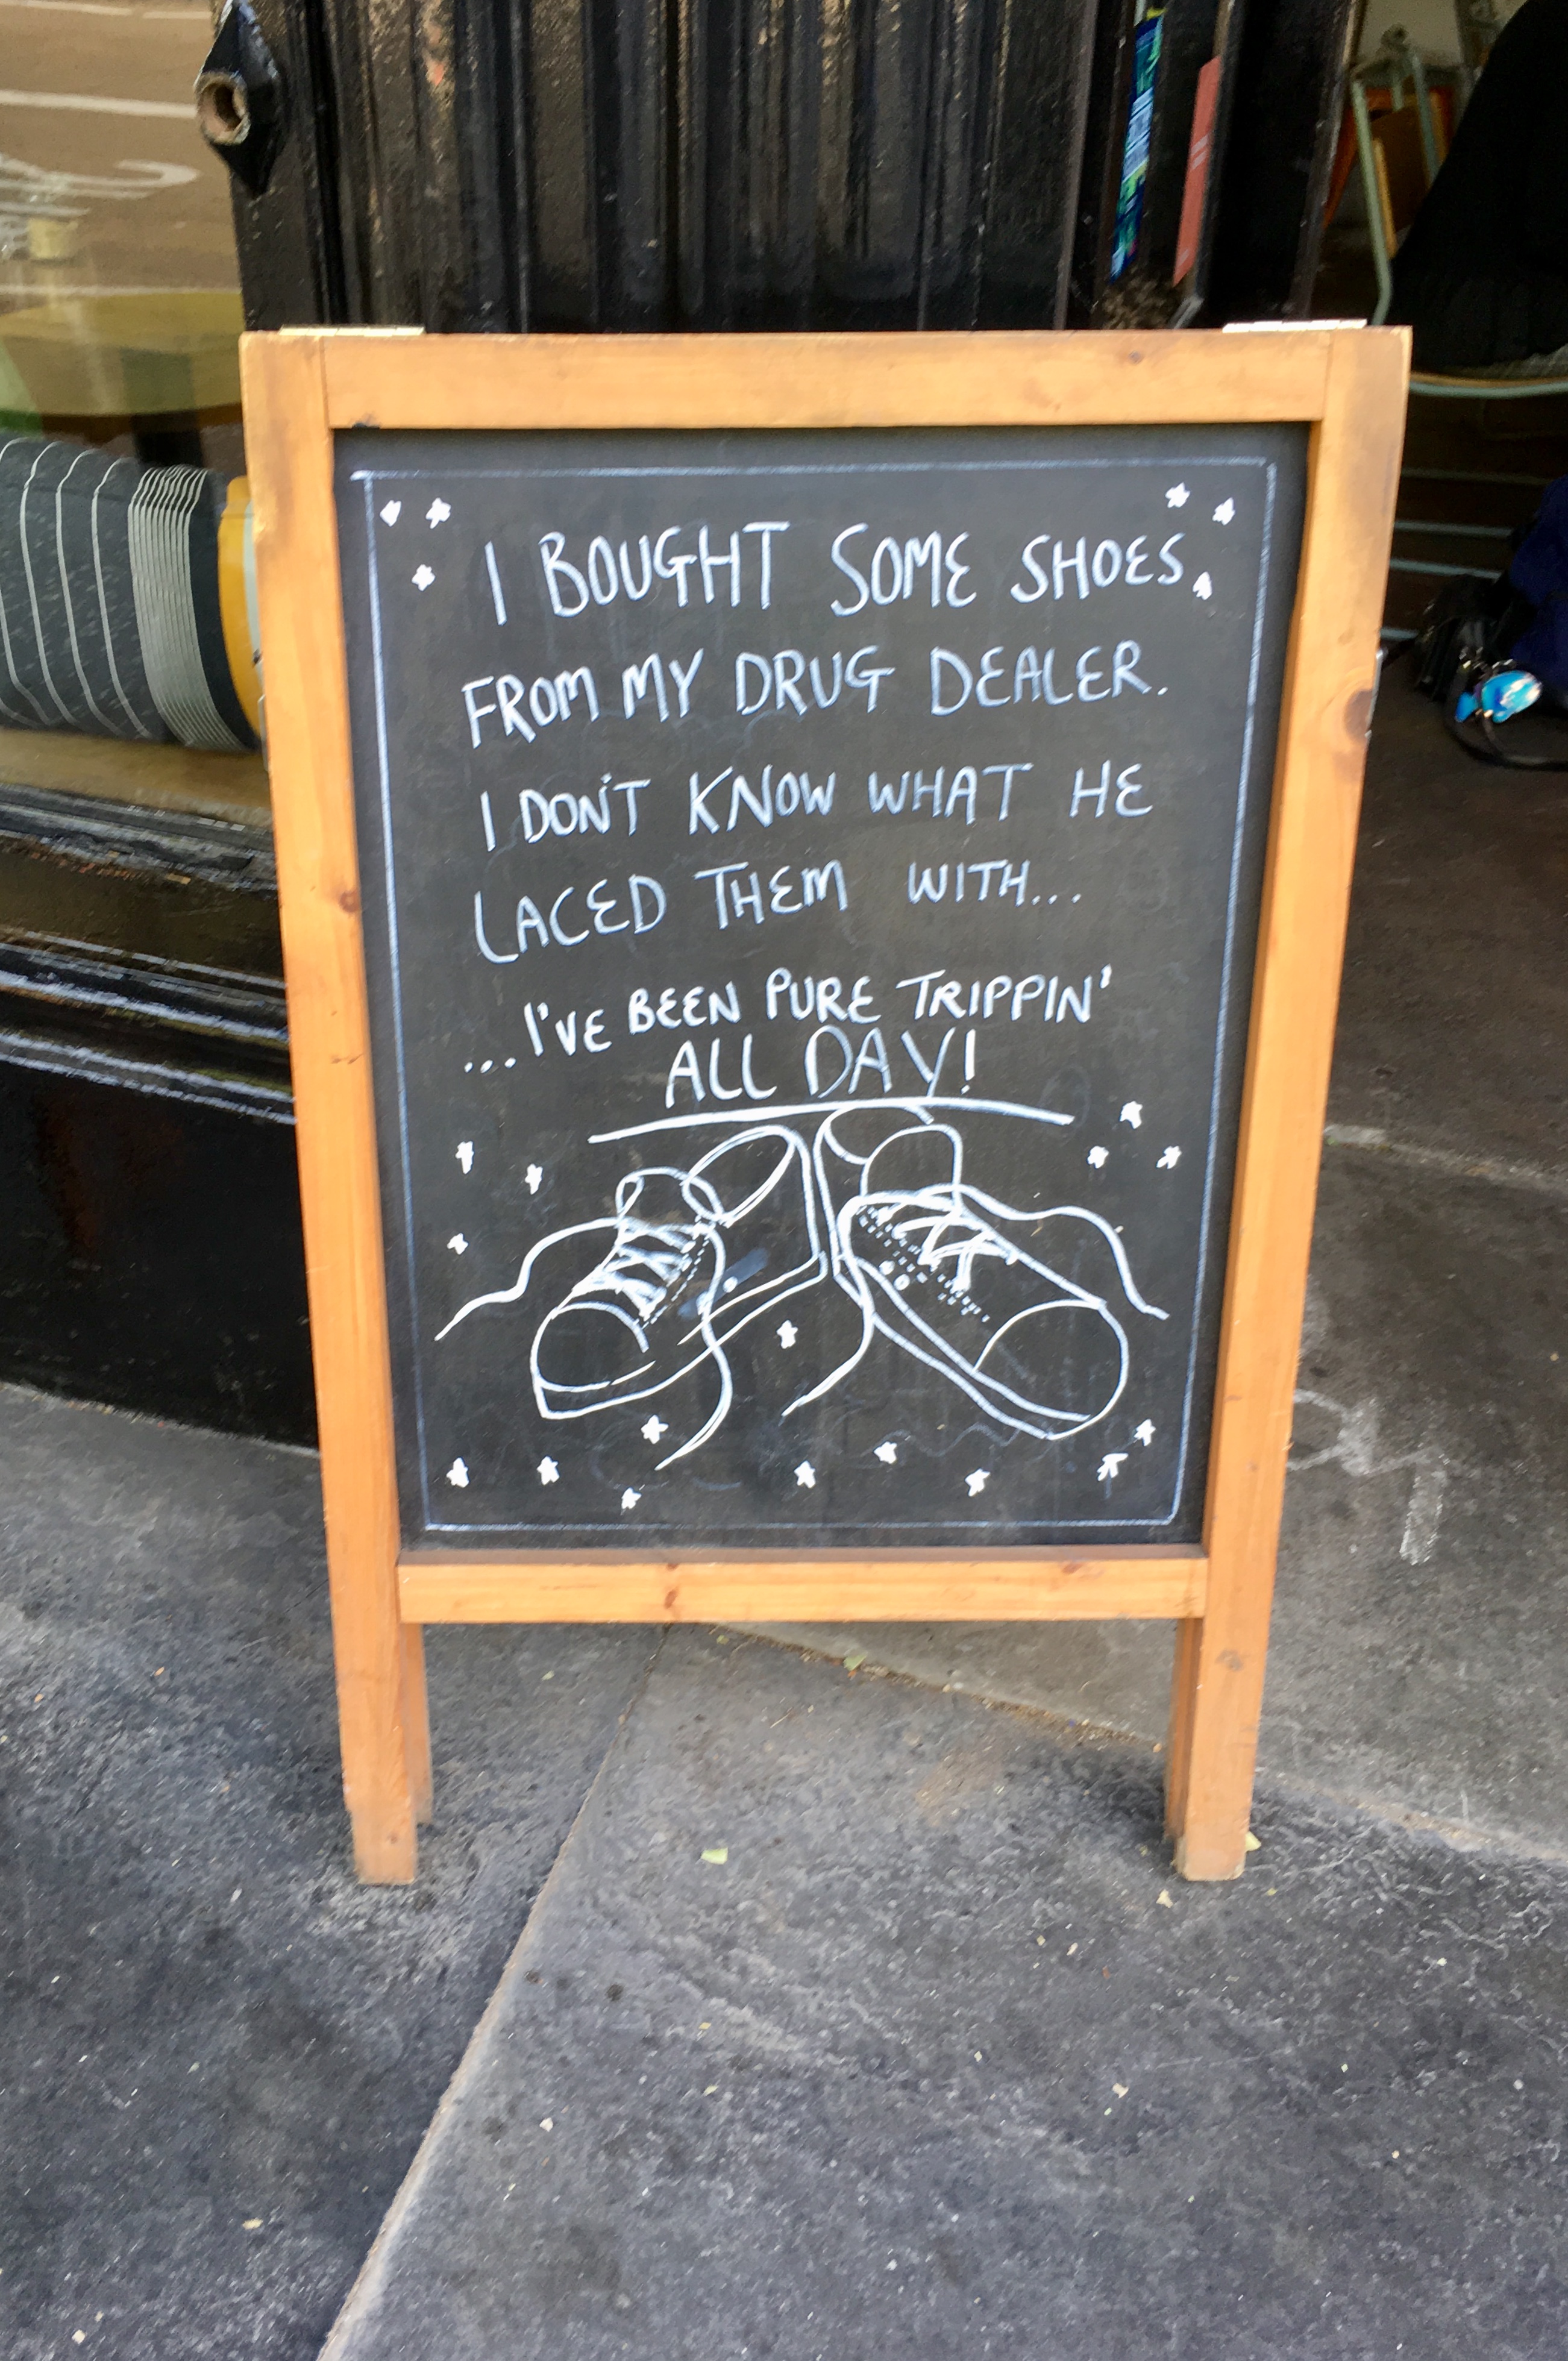 I BOUGHT SOME SHOES
FROM MY DRUG DEALER.
I DON'T KNOW WHAT HE
LACED THEM WITH...
...I'VE BEEN PURE TRIPPIN'
ALL DAY!